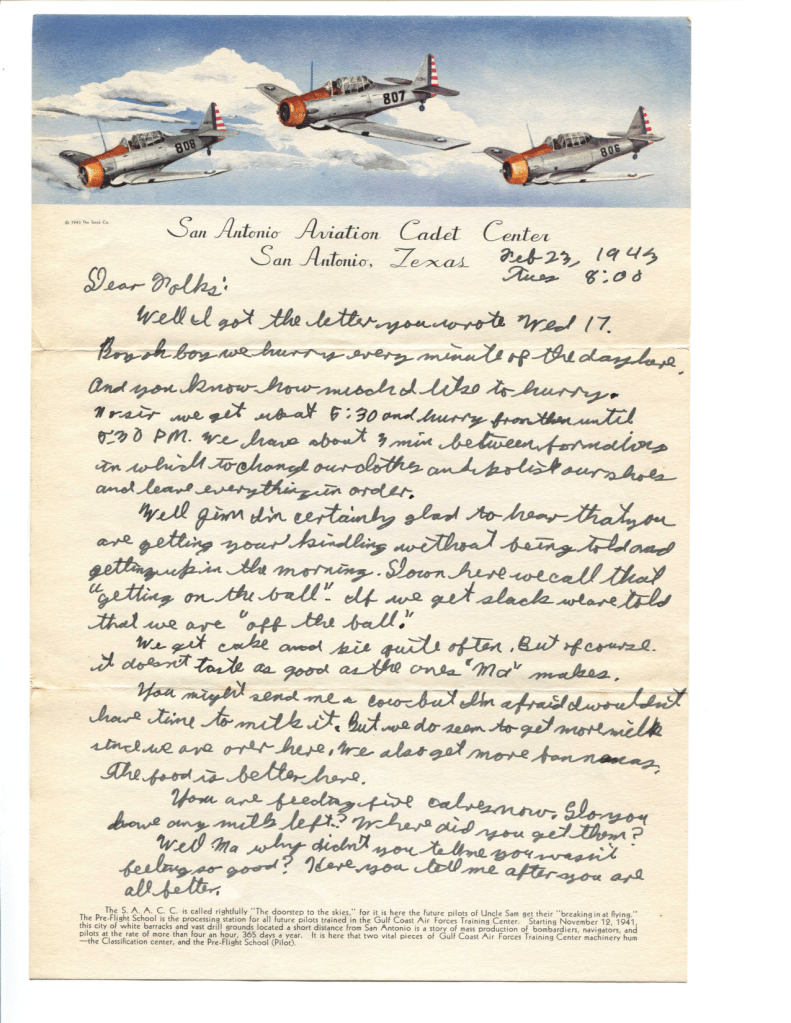 808
807
806
© 1943 The Seck Co.
San Antonio Aviation Cadet Center
San Antonio, Texas
Feb 23, 1943
Tues 8:00
Dear Folks:
Well I got the letter you wrote Wed 17.
Boy oh boy we hurry every minute of the day here.
And you know how much I like to hurry.
No sir we get up at 5:30 and hurry from then until
8:30 PM. We have about 3 min between formations
in which to change our clothes and polish our shoes
and leave everything in order.
Well Jim I'm certainly glad to hear that you
are getting your kindling without being told and
getting up in the morning. Down here we call that
"getting on the ball". If we get slack we are told
that we are "off the ball."
We get cake and pie quite often. But of course
it doesn't taste as good as the ones "Ma" makes.
You might send me a cow but I'm afraid I wouldn't
have time to milk it. But we do seem to get more milk
since we are over here. We also get more bannanas.
The food is better here.
You are feeding five calves now. Do you
have any milk left? Where did you get them?
Well Ma why didn't you tell me you wasn't
feeling so good? Here you tell me after you are
all better.
The S. A. A. C. C. is called rightfully "The doorstep to the skies," for it is here the future pilots of Uncle Sam get their "breaking in at flying."
The Pre-Flight School is the processing station for all future pilots trained in the Gulf Coast Air Forces Training Center. Starting November 12, 1941,
this city of white barracks and vast drill grounds located a short distance from San Antonio is a story of mass production of bombardiers, navigators, and
pilots at the rate of more than four an hour, 365 days a year. It is here that two vital pieces of Gulf Coast Air Forces Training Center machinery hum
—the Classification center, and the Pre-Flight School (Pilot).